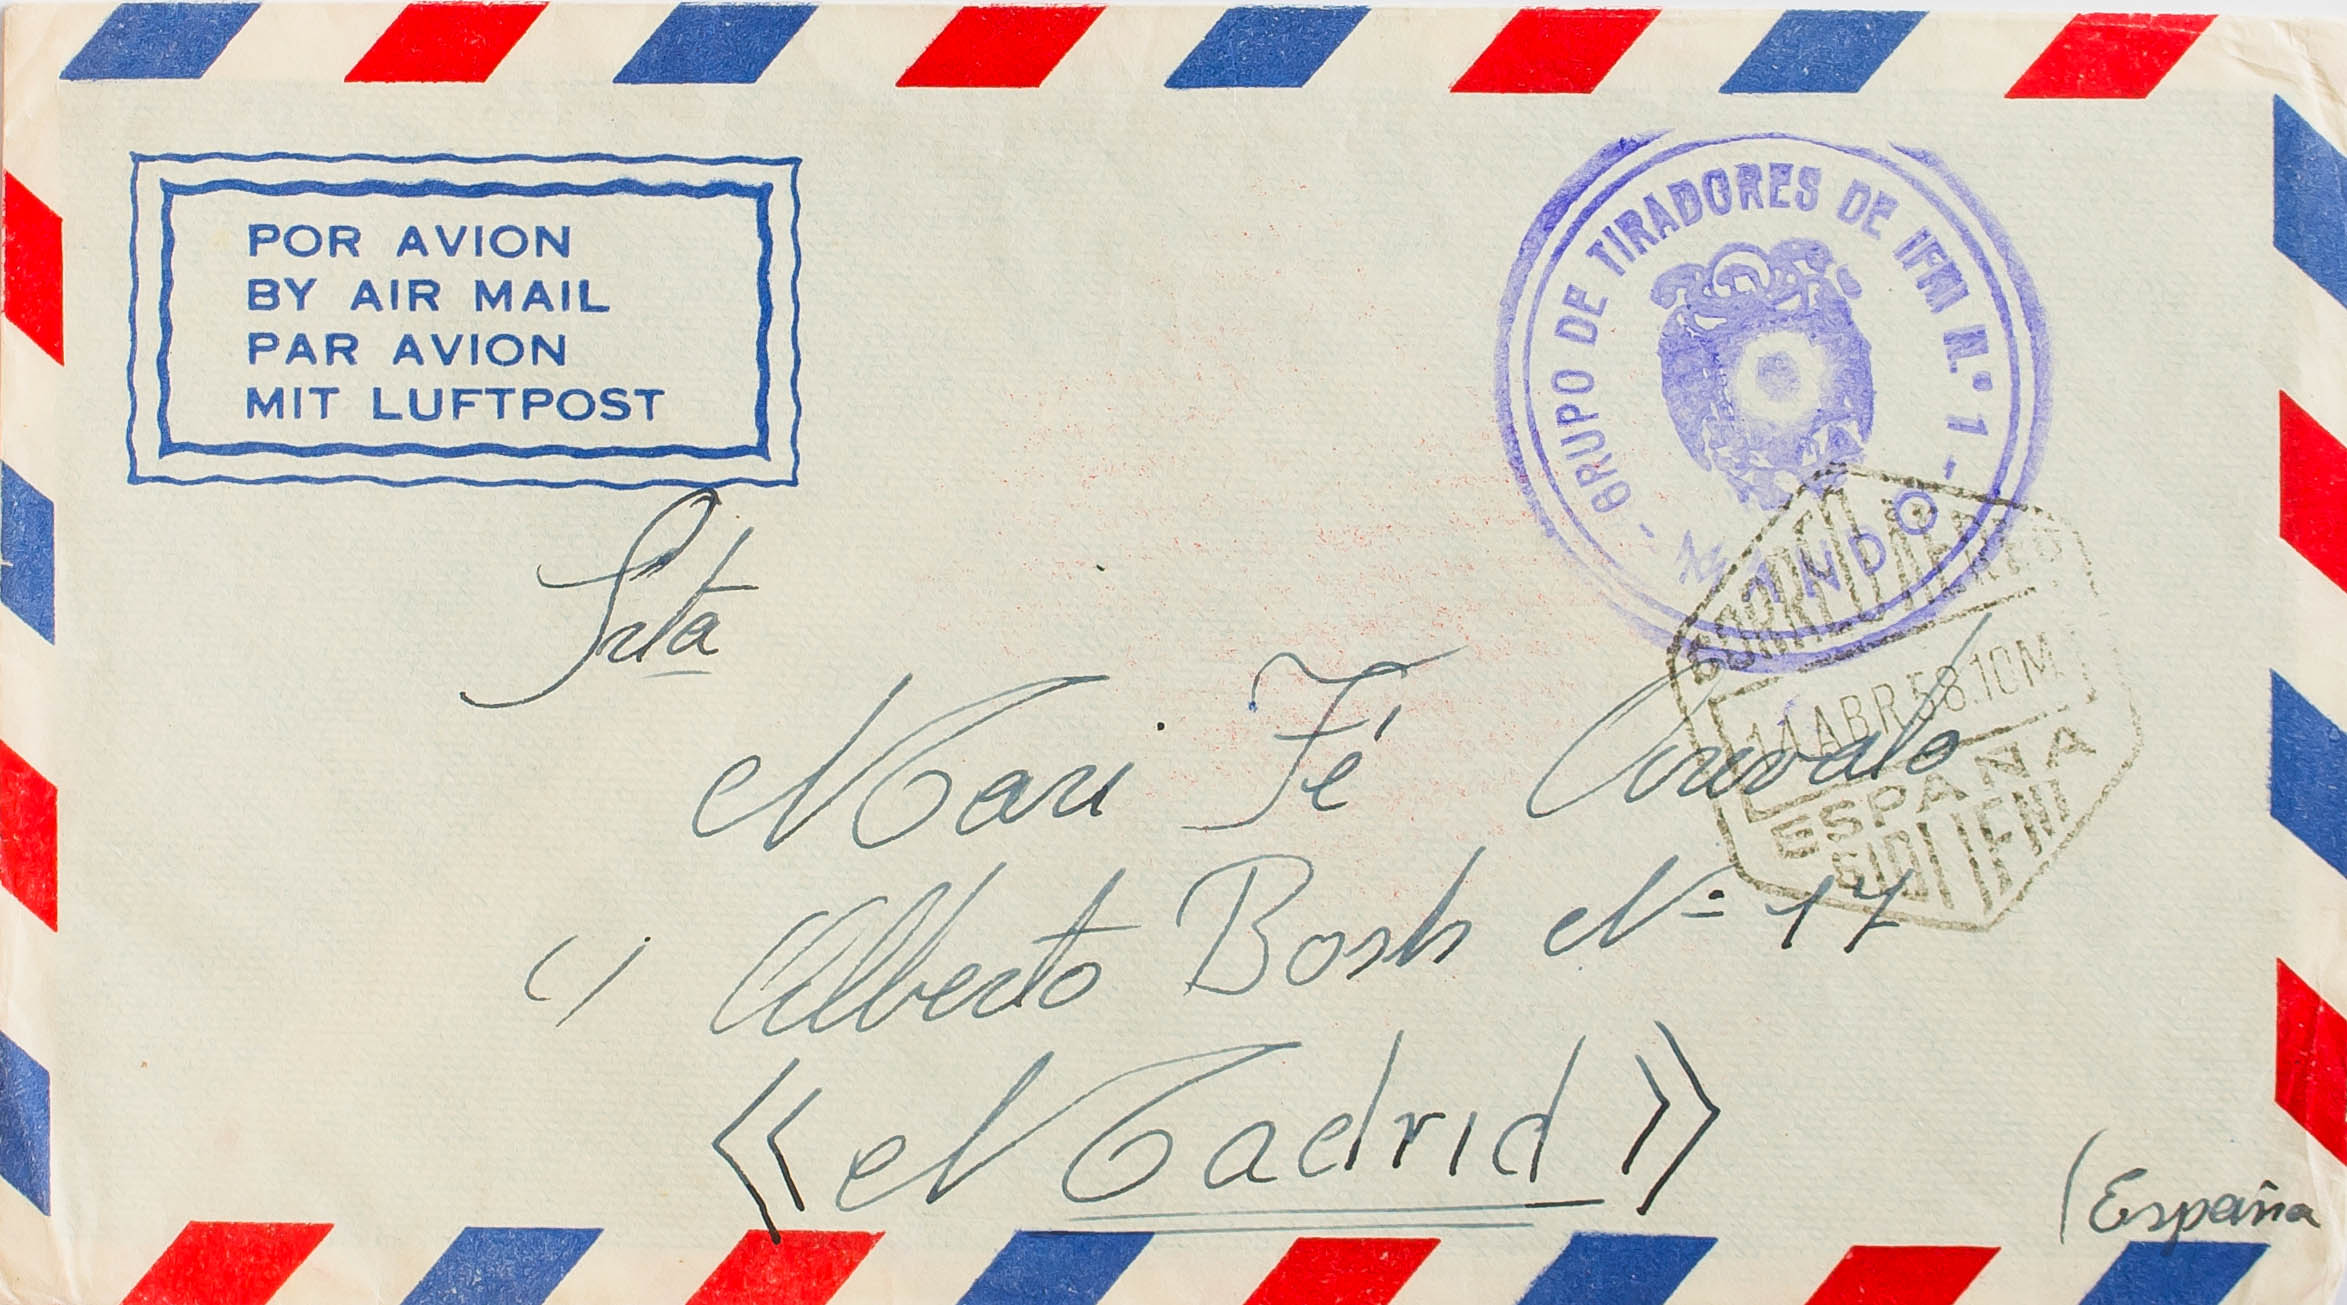 POR AVION
BY AIR MAIL
PAR AVION
MIT LUFTPOST
- GRUPO DE TIRADORES DE IFNI N.º 1 -
CORREO AEREO
14 ABR.58.10M
ESPAÑA
SIDI IFNI
Srta
Mari Fé
Alberto Bosh Nº 17
« Madrid »
(España